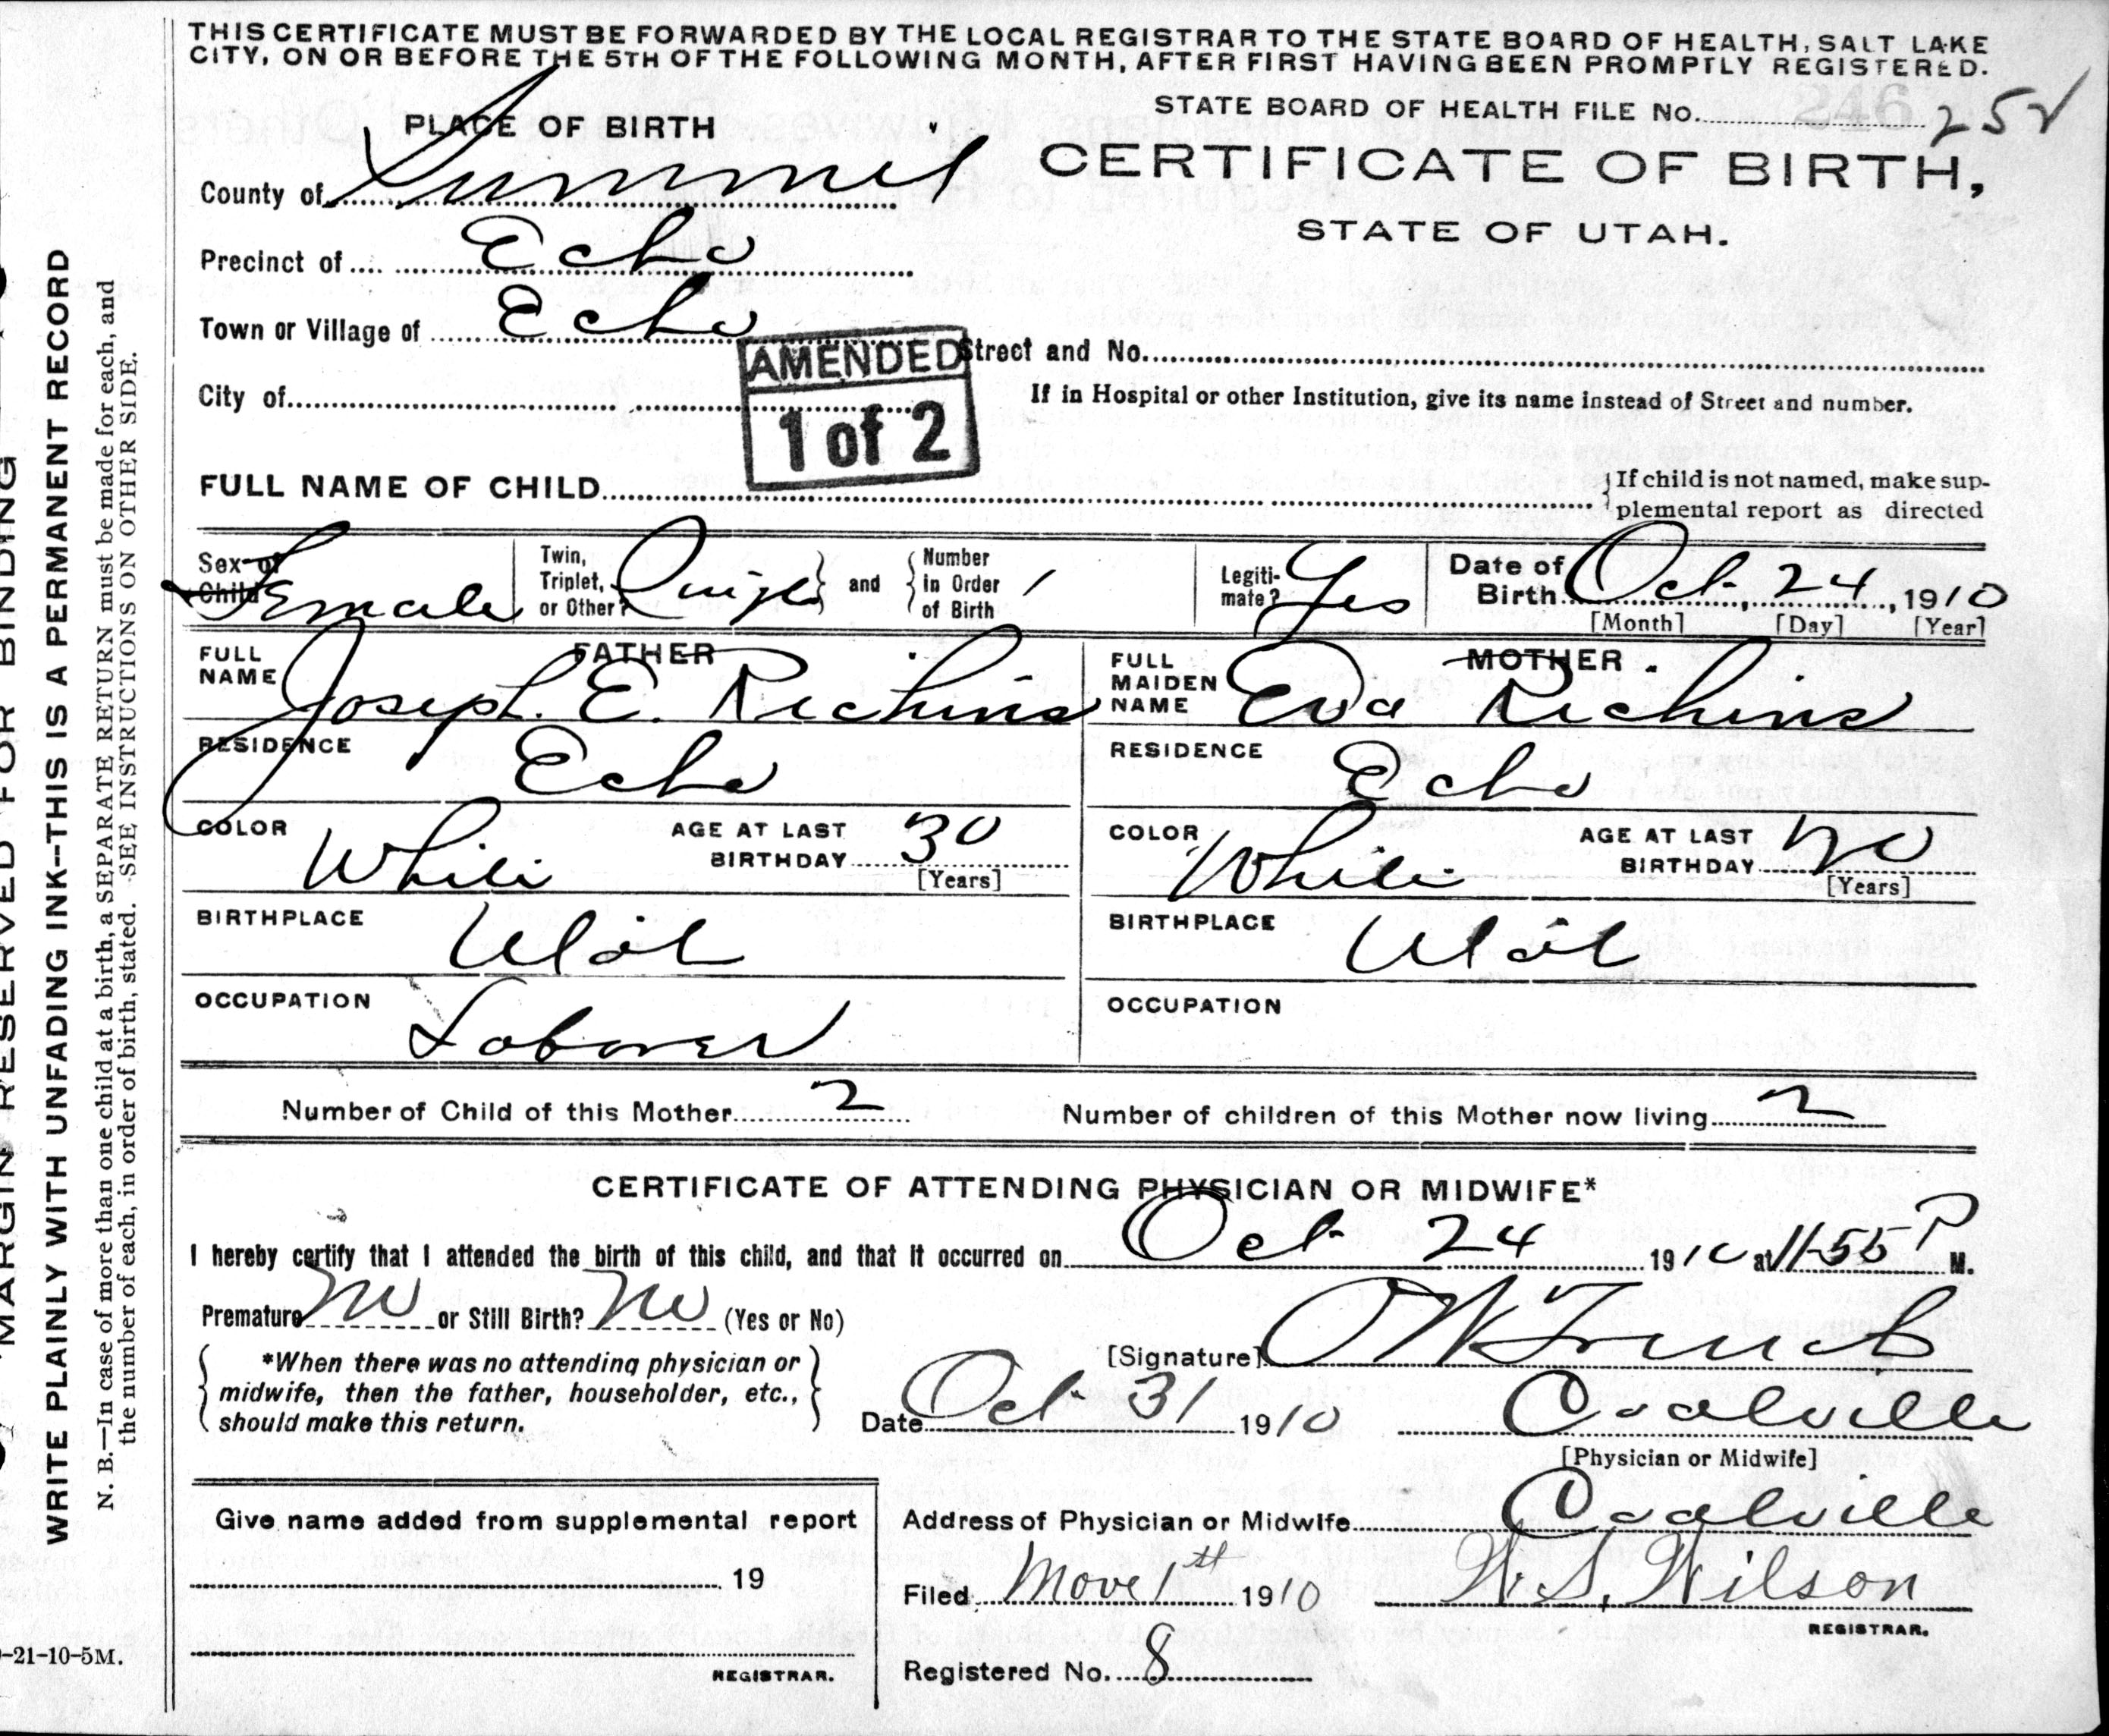 THIS CERTIFICATE MUST BE FORWARDED BY THE LOCAL REGISTRAR TO THE STATE BOARD OF HEALTH, SALT LAKE
CITY, ON OR BEFORE THE 5TH OF THE FOLLOWING MONTH, AFTER FIRST HAVING BEEN PROMPTLY REGISTERED.
STATE BOARD OF HEALTH FILE No. 246 252
PLACE OF BIRTH
CERTIFICATE OF BIRTH,
STATE OF UTAH.
County of Summit
Precinct of Echo
Town or Village of Echo
Street and No.
AMENDED
1 of 2
City of
If in Hospital or other Institution, give its name instead of Street and number.
FULL NAME OF CHILD
If child is not named, make sup-
plemental report as directed
Sex of Child Female
Twin, Triplet, or Other? Single and Number in Order of Birth 1
Legiti-mate? Yes
Date of Birth Oct. 24, 1910
[Month] [Day] [Year]
FATHER
FULL NAME Joseph. E. Richins
RESIDENCE Echo
COLOR White AGE AT LAST BIRTHDAY 30
[Years]
BIRTHPLACE Utah
OCCUPATION Laborer
MOTHER.
FULL MAIDEN NAME Eva Richins
RESIDENCE Echo
COLOR White AGE AT LAST BIRTHDAY
[Years]
BIRTHPLACE Utah
OCCUPATION
Number of Child of this Mother 2 Number of children of this Mother now living 2
CERTIFICATE OF ATTENDING PHYSICIAN OR MIDWIFE*
I hereby certify that I attended the birth of this child, and that it occurred on Oct 24 1910 at 11-55 P M.
Premature No or Still Birth? No (Yes or No)
*When there was no attending physician or
midwife, then the father, householder, etc.,
should make this return.
[Signature]
Date Oct 31 1910 Coalville
[Physician or Midwife]
Give name added from supplemental report
19
REGISTRAR.
Address of Physician or Midwife Coalville
Filed Move 1st 1910 W. S. Wilson
REGISTRAR.
Registered No. 8
MARGIN RESERVED FOR BINDING
WRITE PLAINLY WITH UNFADING INK--THIS IS A PERMANENT RECORD
N. B.—In case of more than one child at a birth, a SEPARATE RETURN must be made for each, and
the number of each, in order of birth, stated. SEE INSTRUCTIONS ON OTHER SIDE.
-21-10-5M.